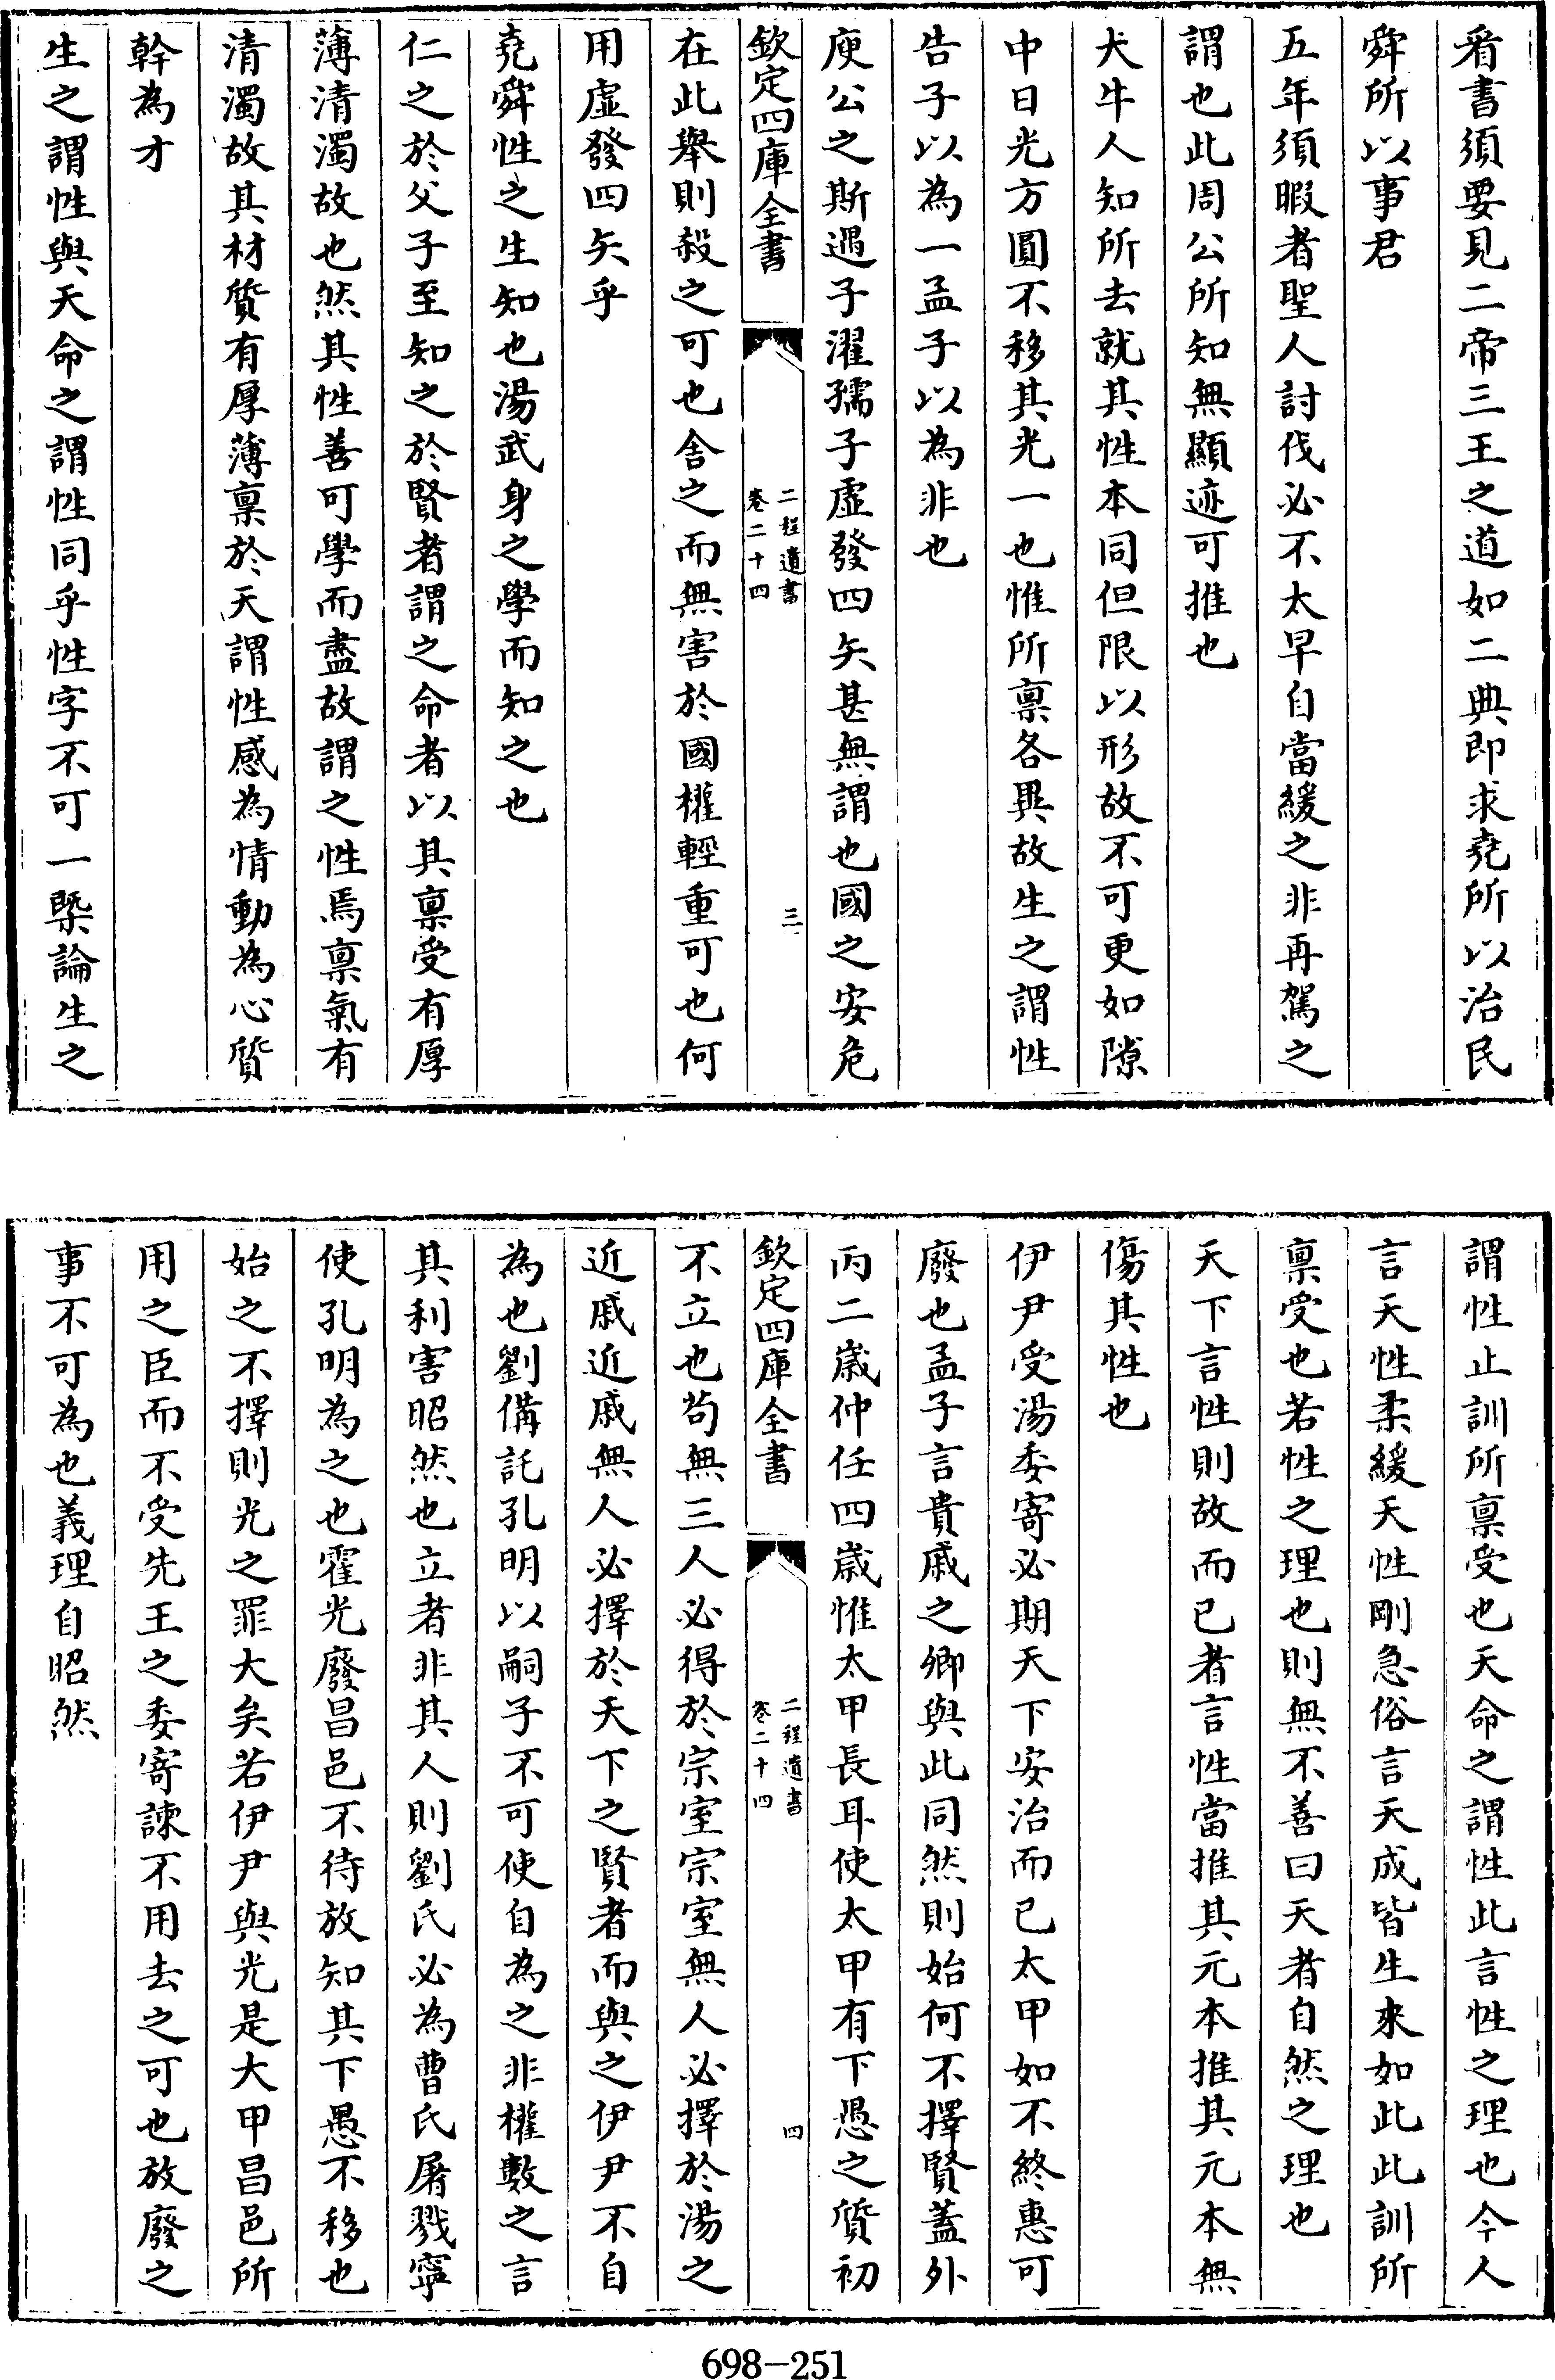 看書須要見二帝三王之道如二典即求堯所以治民
舜所以事君
五年須暇者聖人討伐必不太早自當緩之非再駕之
謂也此周公所知無顯迹可推也
犬牛人知所去就其性本同但限以形故不可更如隙
中日光方圓不移其光一也惟所禀各異故生之謂性
告子以為一孟子以為非也
庾公之斯遇子濯孺子虚發四矢甚無謂也國之安危
欽定四庫全書
二程遺書
卷二十四
三
在此舉則殺之可也舍之而無害於國權輕重可也何
用虚發四矢乎
堯舜性之生知也湯武身之學而知之也
仁之於父子至知之於賢者謂之命者以其禀受有厚
薄清濁故也然其性善可學而盡故謂之性焉禀氣有
清濁故其材質有厚薄禀於天謂性感為情動為心質
幹為才
生之謂性與天命之謂性同乎性字不可一槩論生之
謂性止訓所禀受也天命之謂性此言性之理也今人
言天性柔緩天性剛急俗言天成皆生來如此此訓所
禀受也若性之理也則無不善曰天者自然之理也
天下言性則故而已者言性當推其元本推其元本無
傷其性也
伊尹受湯委寄必期天下安治而已太甲如不終惠可
廢也孟子言貴戚之卿與此同然則始何不擇賢蓋外
丙二歲仲任四歲惟太甲長耳使太甲有下愚之質初
欽定四庫全書
二程遺書
卷二十四
四
不立也苟無三人必得於宗室宗室無人必擇於湯之
近戚近戚無人必擇於天下之賢者而與之伊尹不自
為也劉備託孔明以嗣子不可使自為之非權數之言
其利害昭然也立者非其人則劉氏必為曹氏屠戮寧
使孔明為之也霍光廢昌邑不待放知其下愚不移也
始之不擇則光之罪大矣若伊尹與光是大甲昌邑所
用之臣而不受先王之委寄諫不用去之可也放廢之
事不可為也義理自昭然
698-251